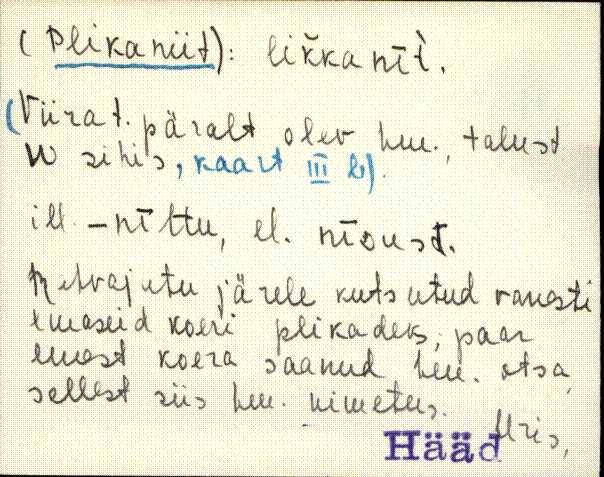 (Plikaniit): liḱkanīt̀.
(Viirat. päralt olev hm., talust
W sihis, kaart III b).
ill. -nīttu, el. nīᴅust.
Rahvajutu järele kutsutud vanasti
emaseid koeri plikadeks; paar
emast koera saanud hm. otsa,
sellest siis hm. nimetus.
Hääd